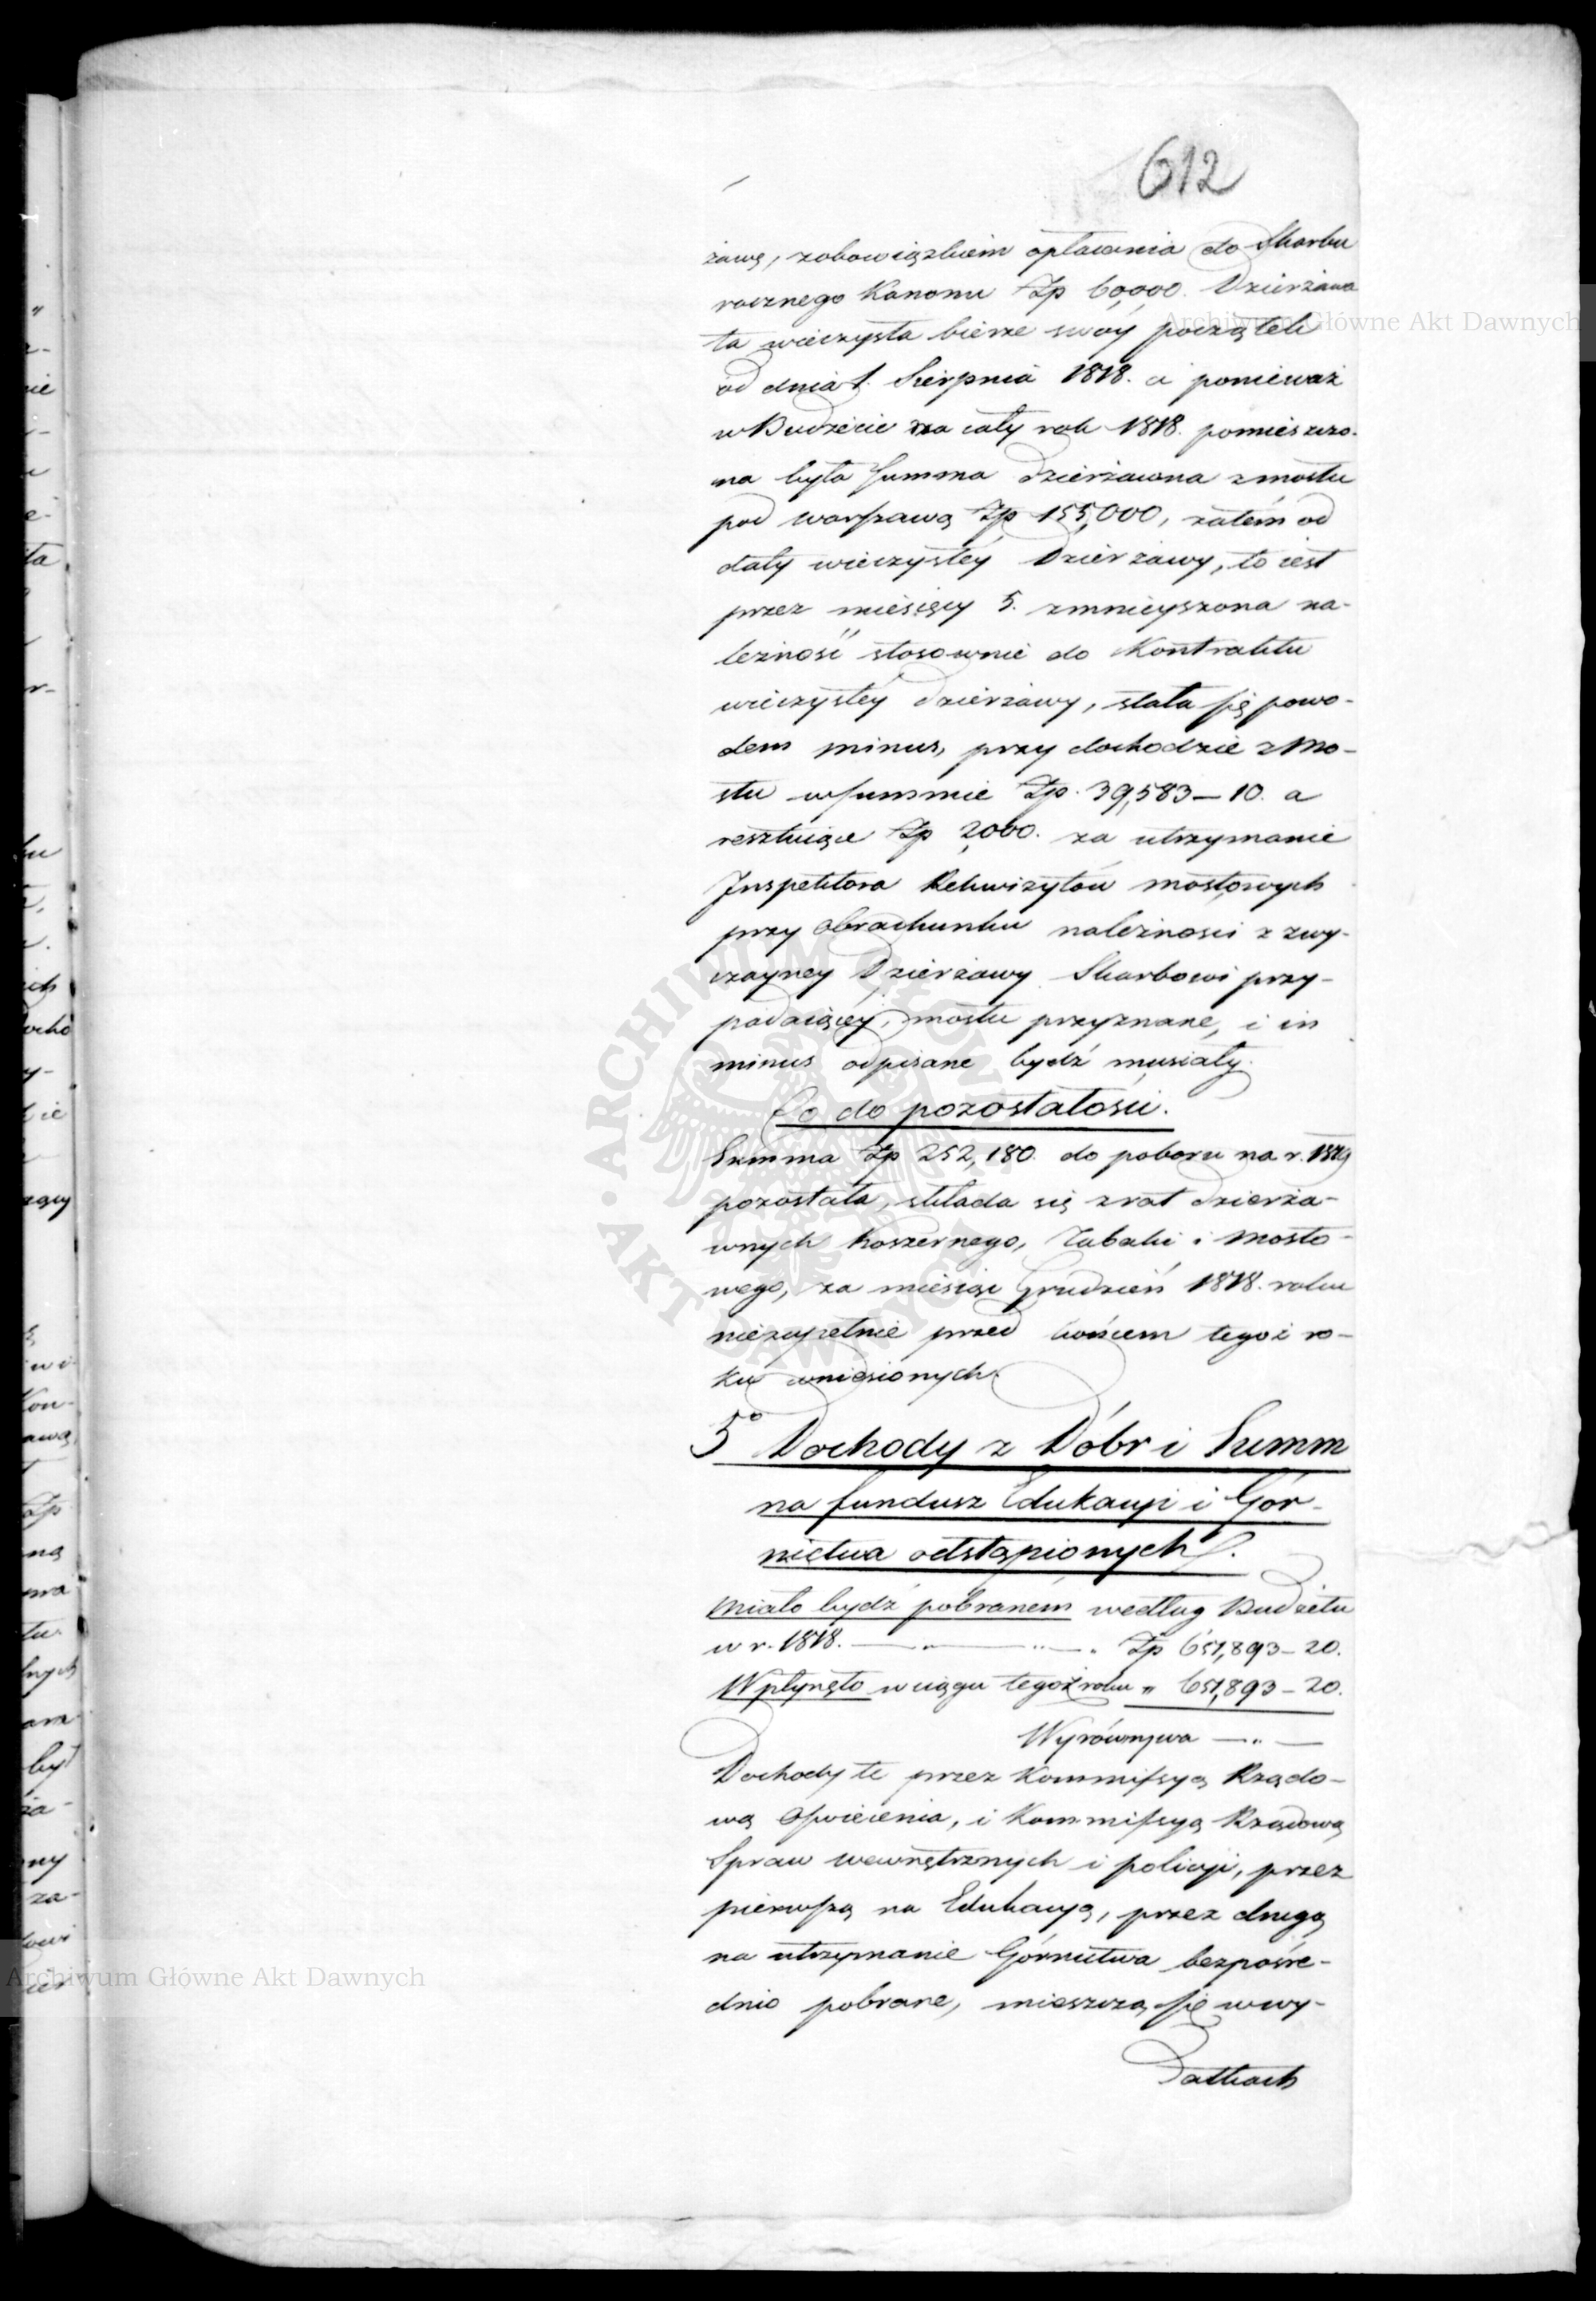 612
żawę, zobowiązkiem opłacania do Skarbu
rocznego Kanonu Zp 60,000. Dzierżawa
ta wieczysta bierze swóy początek
od dnia 1. Sierpnia 1818. a ponieważ
w Budżecie na cały rok 1818. pomieszczo-
na była Summa dzierżawna z mostu
pod Warszawą Zp 155,000, zatém od
daty wieczystéy Dzierżawy, to iest
przez miesięcy 5. zmnieyszona na-
leżność stosownie do Kontraktu
wieczystéy dzierżawy, stała się powo-
dem minus, przy dochodzie z Mo-
stu w summie Zp. 39,583 — 10. a
resztuiące Zp 2,000. za utrzymanie
Inspektora Rekwizytów mostowych
przy obrachunku należności z zwy-
czayney Dzierżawy Skarbowi przy-
padaiącéy, mostu przyznane, i in
minus odpisane bydź musiały.
Co do pozostałości.
Summa Zp 252,180. do poboru na r. 1819
pozostała, składa się z rat dzierża-
wnych Koszernego, Tabaki i Mosto-
wego, za miesiąc Grudzień 1818. roku
niezupełnie przed końcem tegoż ro-
ku wniesionych.
5° Dochody z Dóbr i Summ
na fundusz Edukacyi i Gór-
nictwa odstąpionych.
Miało bydź pobraném według Budżetu
w r. 1818. — „ — „ — „ Zp 651,893 — 20.
Wpłynęło w ciągu tegoż roku „ 651,893 — 20.
Wyrównywa — „ —
Dochody te przez Kommissyą Rządo-
wą Oświecenia, i Kommissyą Rządową
Spraw wewnętrznych i policyi, przez
pierwszą na Edukacyą, przez drugą
na utrzymanie Górnictwa bezpośre-
dnio pobrane, mieszczą się w wy-
datkach
Archiwum Główne Akt Dawnych
ARCHIWUM GŁÓWNE AKT DAWNYCH
Archiwum Główne Akt Dawnych